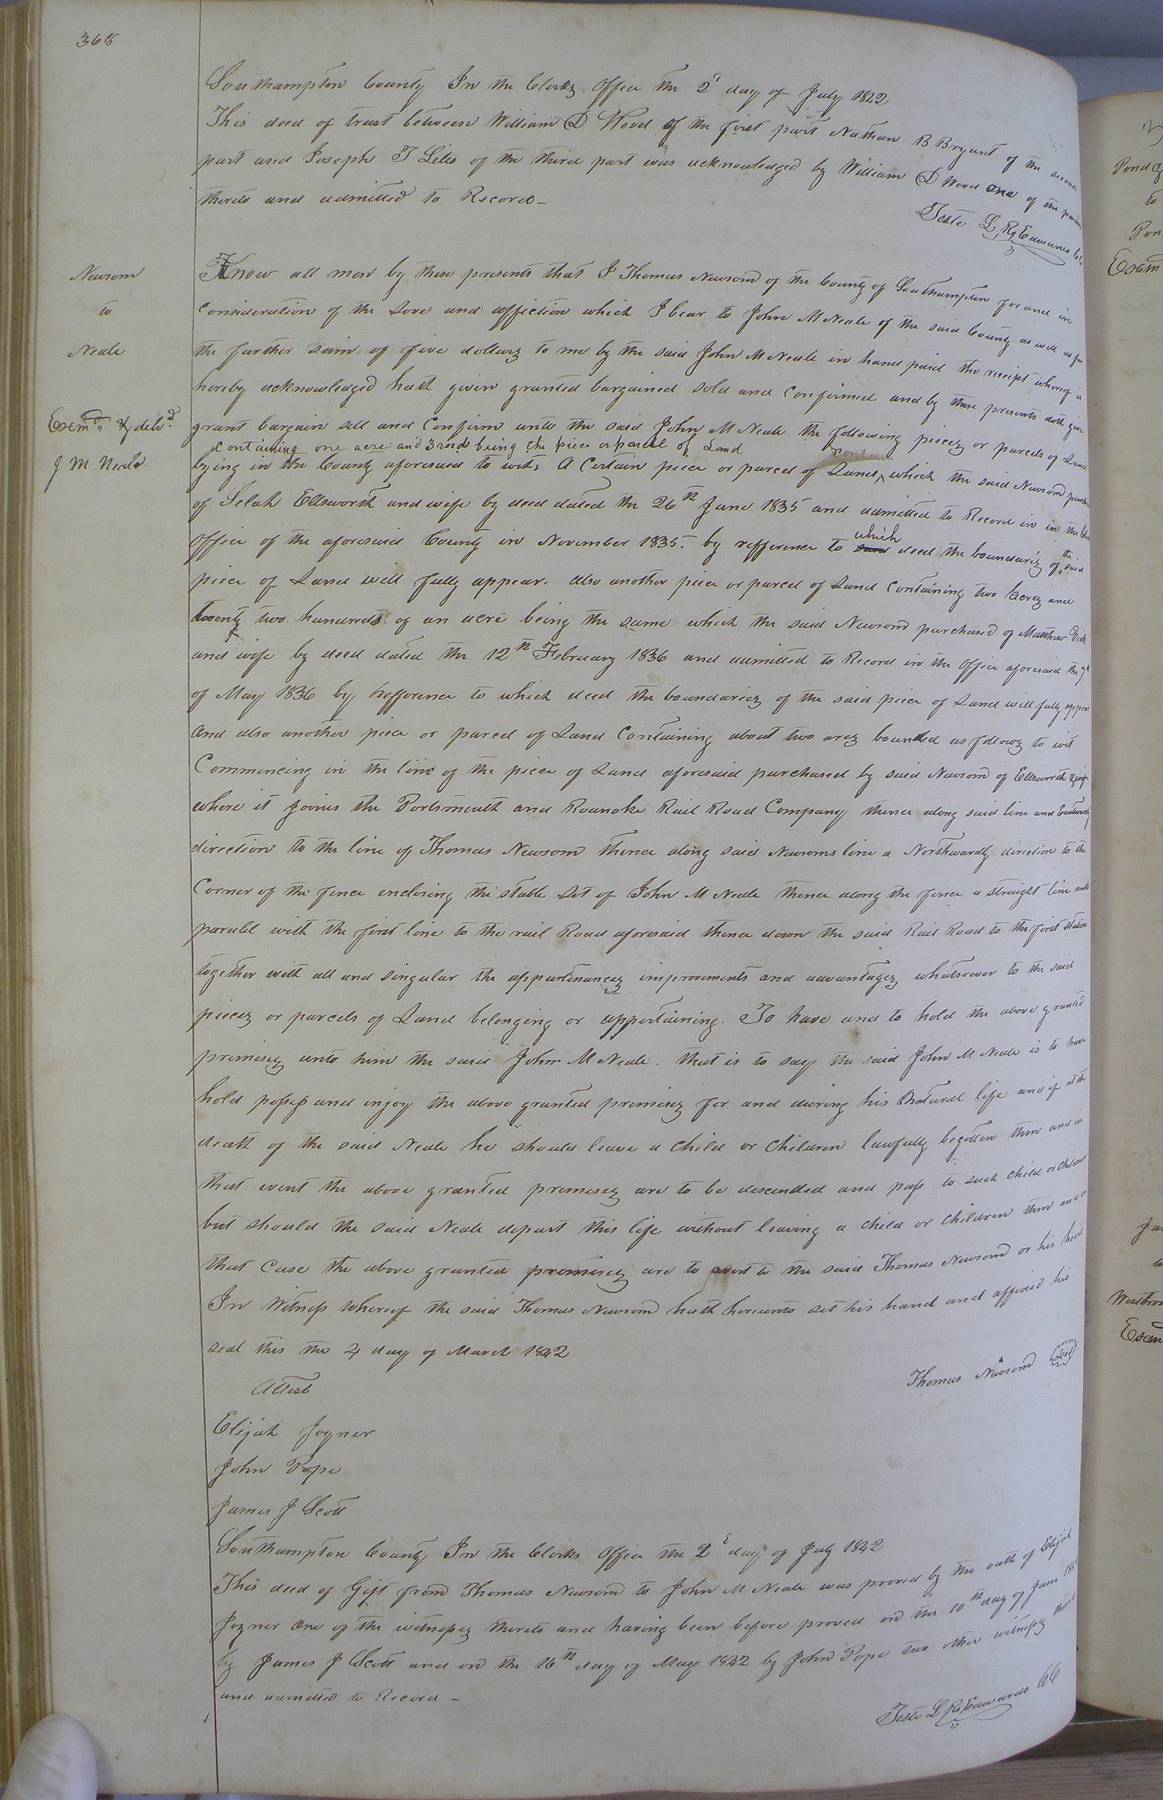 368
Southampton County In the Clerks Office the 2d day of July 1842
This deed of trust between William D Wood of the first part Nathan B Bryant of the second
part and Joseph T Liles of the third part was acknowledged by William D Wood one of the parties
thereto and admitted to Record-
Teste L. R. Edwards
Newsom
to
Neale
Exemd & deld
J M Neale
Know all men by these presents that I Thomas Newsom of the County of Southampton for and in
Consideration of the Love and affection which I bear to John M Neale of the said County as well as for
the further sum of five dollars to me by the said John M Neale in hand paid the receipt whereof is
hereby acknowledged hath given granted bargained sold and Confirmed and by these presents doth give
grant bargain sell and Confirm unto the said John M Neale the following pieces or parcels of Land
Containing one acre and 3 rods being the piece or parcel of Land
lying in the County aforesaid to wit, A Certain piece or parcel of Land, which the said Newsom
of Selah Ellsworth and wife by deed dated the 26th June 1835 and admitted to Record in in the
which
office of the aforesaid County in November 1835. by refference to deed the boundaries of the said
piece of Land will fully appear. also another piece or parcel of Land Containing two Acres and
twenty two hundreds of an acre being the same which the said Newsom purchasd of Matthew
and wife by deed dated the 12th February 1836 and admitted to Record in the office aforesaid the
of May 1836 by refference to which deed the boundaries of the said piece of Land will fully appear
And also another piece or parcel of Land Containing about two acres bounded as follows to wit
Commencing in the line of the piece of Land aforesaid purchased by said Newsom of Ellsworth & wife
where it joins the Portsmouth and Roanoke Rail Road Company thence along said line and Eastwardly
direction to the line of Thomas Newsom thence along said Newsoms line a Northwardly direction to the
Corner of the fence enclosing the stable Lot of John M Neale thence along the fence a straight line and
paralel with the first line to the rail Road aforesaid thence down the said Rail Road to the first station
together with all and singular the appurtinances improvments and advantages whatsoever to the said
pieces or parcels of Land belonging or appertaining. To have and to hold the above granted
premises unto him the said John M Neale. that is to say the said John M Neale is to have
hold possess and injoy the above granted premises for and during his Natural life and if at the
death of the said Neale he should leave a child or Children lawfully begotten then and in
that event the above granted premises are to be descended and pass to such child or children
but should the said Neale depart this life without leaving a child or children then and in
that Case the above granted premises are to revert to the said Thomas Newsom or his heirs
In Witness whereof the said Thomas Newsom hath hereunto set his hand and affixed his
seal this the 4 day of March 1842
Thomas Newsom (Seal)
Attest
Elijah Joyner
John Pope
James J Scott
Southampton County, In the Clerks Office the 2d day of July 1842
This deed of Gift from Thomas Newsom to John M Neale was proved by the oath of Elijah
Joyner one of the witnesses thereto and having been before proved on the 10th day of June
by James J Scott and on the 16th day of May 1842 by John Pope two other witnesses
and admitted to Record-
Teste L. R. Edwards CC
to